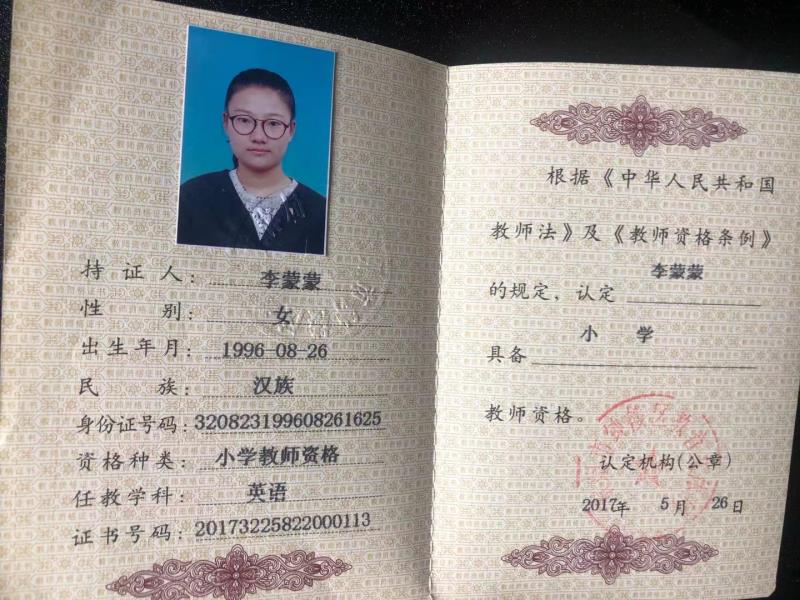 持证人：李蒙蒙
性别：女
出生年月：1996-08-26
民族：汉族
身份证号码：320823199608261625
资格种类：小学教师资格
任教学科：英语
证书号码：20173225822000113
根据《中华人民共和国
教师法》及《教师资格条例》
的规定，认定 李蒙蒙
具备 小学
教师资格。
认定机构(公章)
2017年 5月 26日